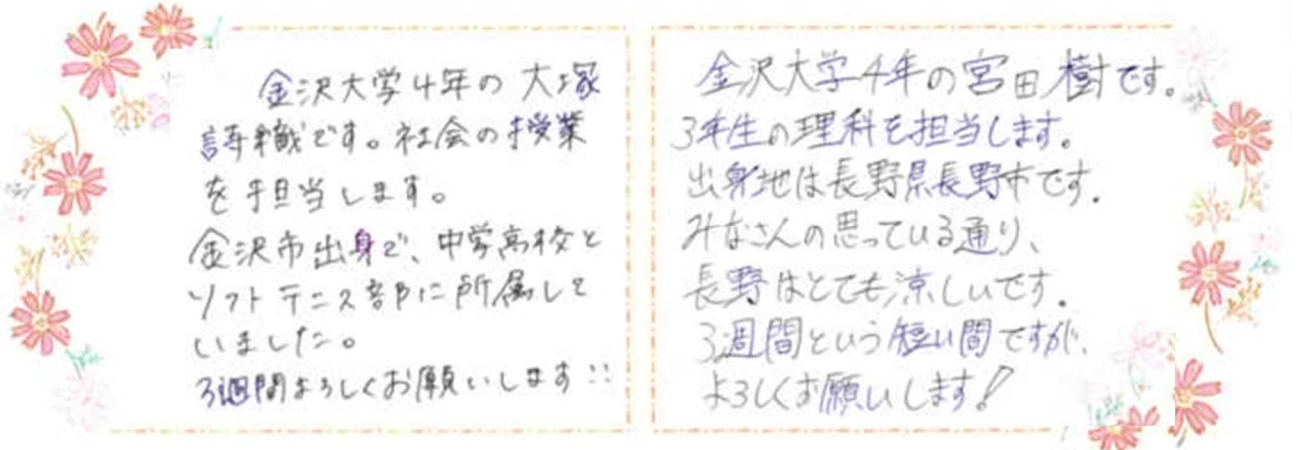 金沢大学4年の大塚
です。社会の授業
を担当します。
金沢市出身で、中学高校と
ソフトテニス部に所属して
いました。
3週間よろしくお願いします!!
金沢大学4年の宮田樹です。
3年生の理科を担当します。
出身地は長野県長野市です。
みなさんの思っている通り、
長野はとても涼しいです。
3週間という短い間ですが、
よろしくお願いします!